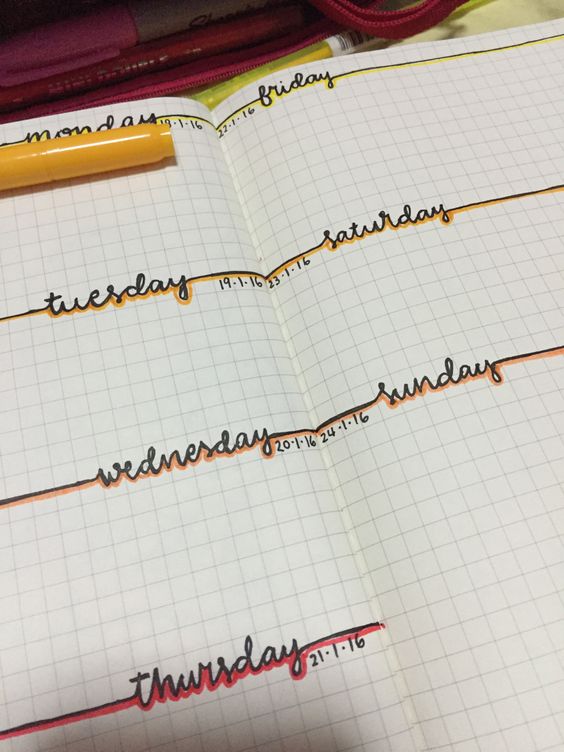 monday 18·1·16
tuesday 19·1·16
wednesday 20·1·16
thursday 21·1·16
friday 22·1·16
saturday 23·1·16
sunday 24·1·16